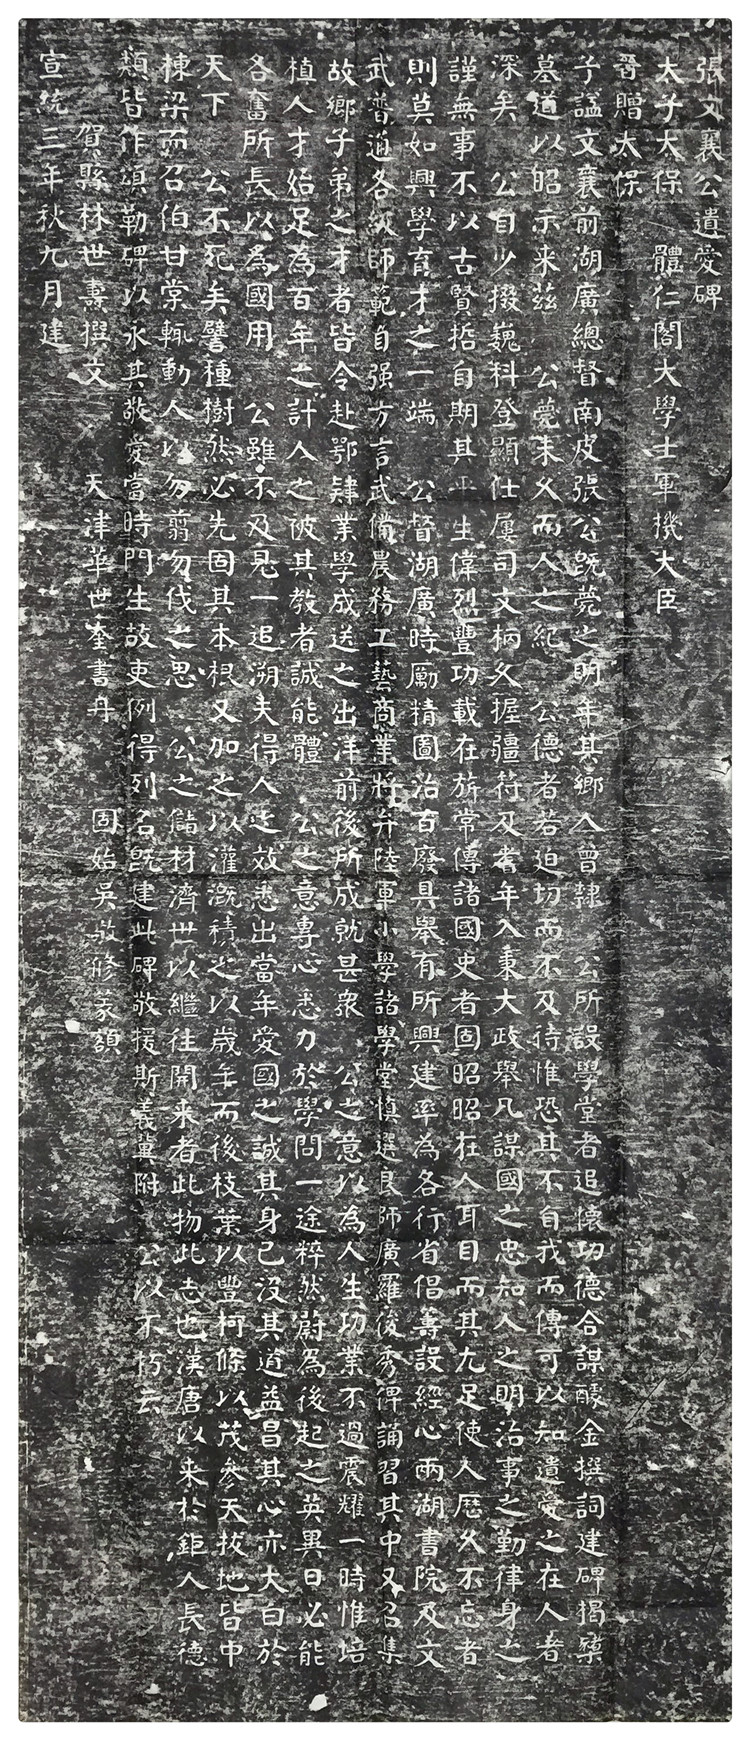 張文襄公遺愛碑
太子太保　體仁閣大學士軍機大臣
晉贈太保
子諡文襄前湖廣總督南皮張公既薨之明年其鄉人曾隸　公所設學堂者追懷功德合謀醵金撰詞建碑揭櫫
墓道以昭示来茲　公薨未久而人之紀　公德者若迫切而不及待惟恐其不自我而傳可以知遺愛之在人者
深矣　公自少掇巍科登顯仕屢司文柄久握疆符及耆年入秉大政舉凡謀國之忠知人之明治事之勤律身之
謹無事不以古賢哲自期其平生偉烈豐功載在旂常傳諸國史者固昭昭在人耳目而其尤足使人歷久不忘者
則莫如興學育才之一端　公督湖廣時勵精圖治百廢具舉有所興建率為各行省倡籌設經心兩湖書院及文
武普通各級師範自强方言武備農務工藝商業將弁陸軍小學諸學堂慎選良師廣羅後秀俾誦習其中又召集
故鄉子弟之才者皆令赴鄂肄業學成送之出洋前後所成就甚衆　公之意以為人生功業不過震耀一時惟培
植人才始足為百年之計人之被其教者誠能體　公之意專心悉力於學問一途粹然蔚為後起之英異日必能
各奮所長以為國用　公雖不及見一追溯夫得人之效悉出當年愛國之誠其身已沒其道益昌其心亦大白於
天下　公不死矣譬種樹然必先固其本根又加之以灌溉積之以歲年而後枝葉以豐柯條以茂參天拔地皆中
棟梁而召伯甘棠輒動人以勿翦勿伐之思　公之儲材濟世以繼往開来者此物此志也漢唐以来於鉅人長德
類皆作頌勒碑以永其敬愛當時門生故吏例得列名既建此碑敬援斯義冀附　公以不朽云
賀縣林世燾撰文　天津華世奎書丹　固始吳敬修篆額
宣統三年秋九月建